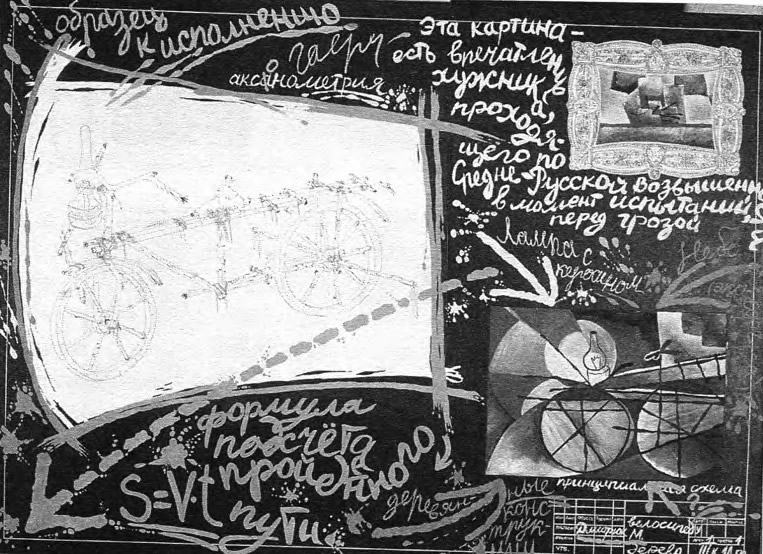 образец
к исполнению
аксонометрия
Эта картина -
есть впечатлени
хужник
а,
проходя-
щего по
Средне-Русской Возвышенн
в момент испытаний
перед грозой
Лампа с
керосином
Небо
формула
подсчёта
пройденного
пути
S=V·t
деревян-
ные
конс-
трук-
ции
принципиальная схема
велосипеда
Дмитрюк М.
дерева